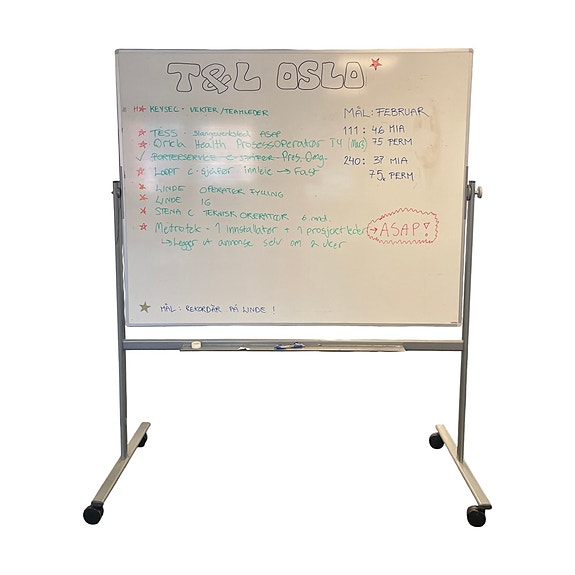 T&L OSLO
KEYSEL - VEKTER/TEAMLEDER
TESS - slangeverksted ASAP
Orkla Health ProsessOperatør TY (Mars)
PORTERSERVICE C-SJÅFØR Pres. Ons.
C-Sjåfør innleie → Fast
LINDE OPERATØR FYLLING
LINDE IG
STENA C TEKNISK OPERATØR 6.mnd.
Metrotek - 1 installatør + 1 prosjektleder → ASAP!
↳ Legger ut annonse selv om 2 uker
MÅL: FEBRUAR
111: 46 MIA
75 PERM
240: 37 MIA
75 PERM
MÅL: REKORDÅR PÅ LINDE!